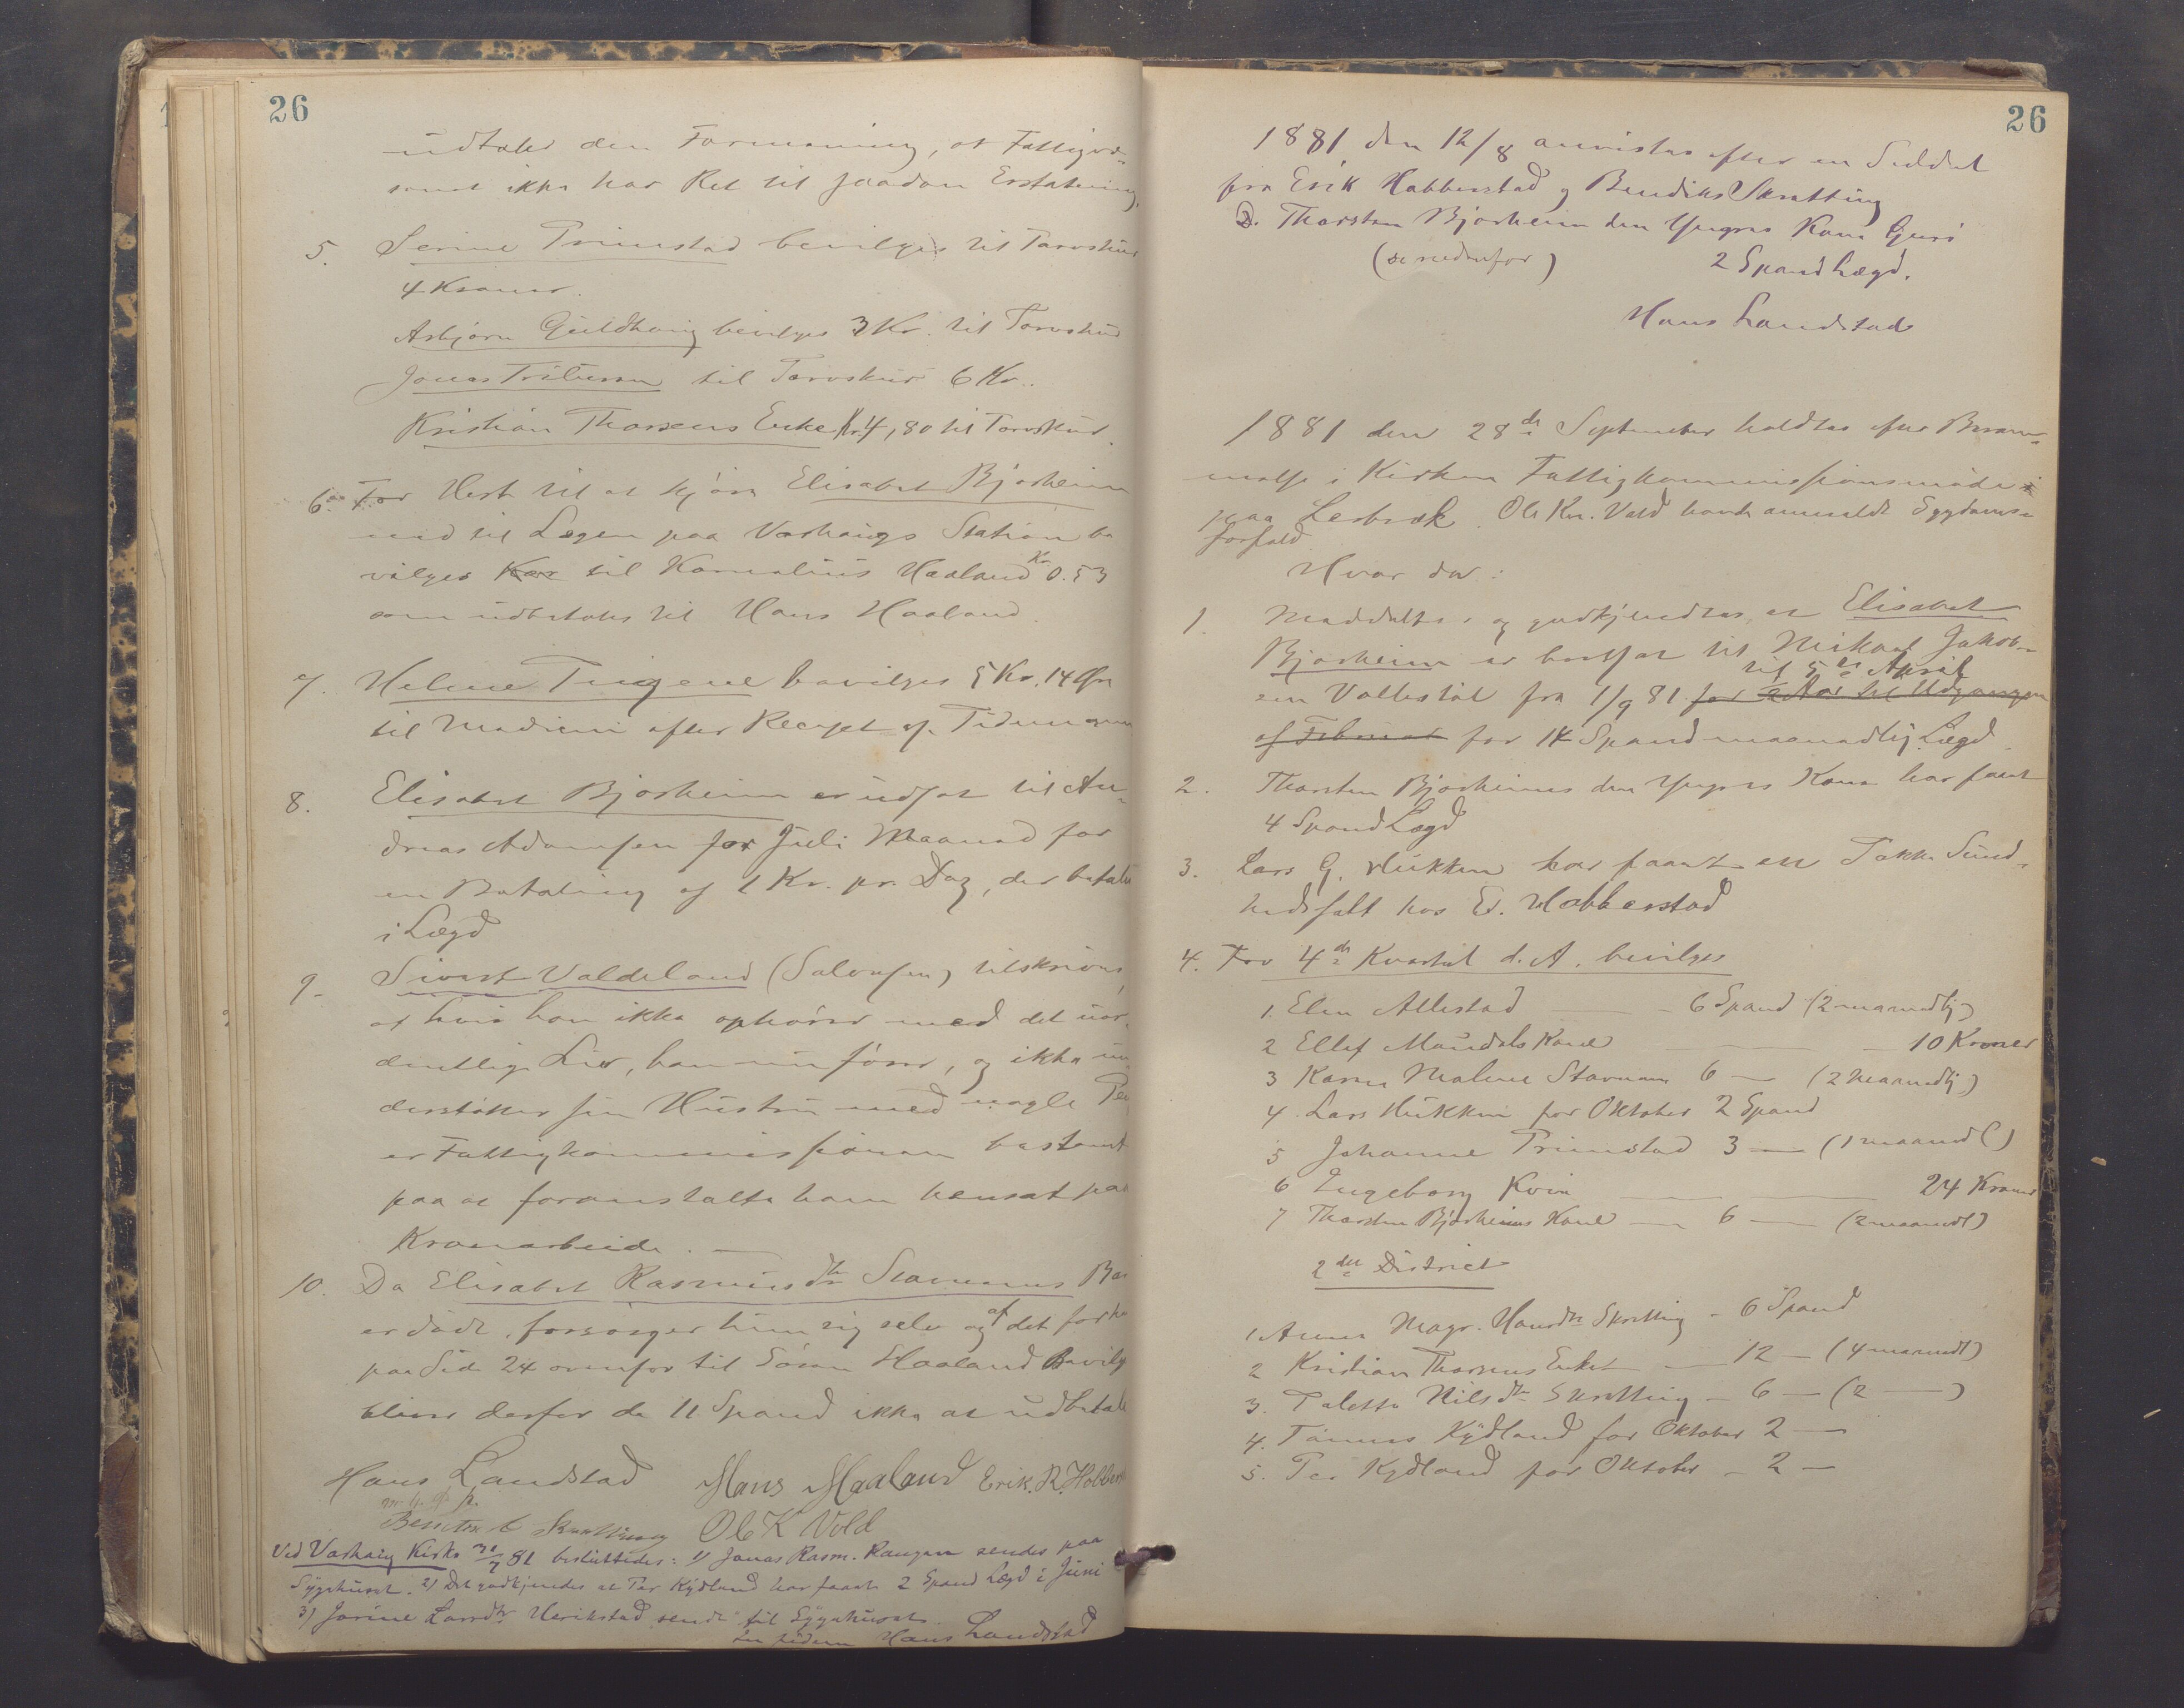 26
udtaler den Formening, at Fattigvæ-
senet ikke har Ret til saadan Erstatning.
5. Serine Primstad bevilges til Torvskur
4 Kroner.
Asbjørn Guldhaug bevilges 3 Kr. til Torvskur
Jonas til Torvskur 6 Kr.
Kristian Thorsens Enke Kr. 4,80 til Torvskur.
6. For Hest til at kjøre Elisabet Bjorheim
ned til Lægen paa Varhaugs Station be
vilges til Kornelius Haaland Kr 0.53
som udbetales til Hans Haaland.
7. Helene Tuigene bevilges 5 Kr. 14 Øre
til Medicin efter Recept af Tidemann
8. Elisabet Bjorheim er udsat til An-
dreas Adamsen for Juli Maaned for
en Betaling af 1 Kr. pr. Dag, der betales
i Lægd
9. Sivert Valdeland (Salvesen) tilskrives,
at hvis han ikke ophører med det uor-
dentlige Liv, han nu fører, og ikke un
derstøtter sin Hustru med nogle Pen
er Fattigkommissionen bestemt
paa at foranstalte ham hensat paa
Kronarbeide.
10. Da Elisabet Rasmusdtr Stavnems Ba
er død, forsørger hun sig selv og af det for
paa Side 24 ovenfor til Søren Haaland Bevilg
bliver derfor de 11 Spand ikke at udbetale
Hans Landstad Hans Haaland Erik. R. Hobber
m. f. p.
Ole K Vold
Ved Varhaug Kirke 31/7 81 besluttedes: 1) Jonas Rasm. Raugen sendes paa
Sygehuset. 2) Det godkjendes at Per Kydland har faaet 2 Spand Lægd i Juni
3) Jorine Larsdtr Herikstad sendt til Sygehuset.
Hans Landstad
26
1881 den 12/8 anvistes efter en Seddel
fra Erik Hobberstad og Bendiks Skretting
D. Thorsten Bjorheim den Yngres Kone Guri
(se nedenfor) 2 Spand Lægd.
Hans Landstad
1881 den 28de September holdtes efter Beram-
melse i Kirken Fattigkommissionsmøde
paa Lerbræk. Ole Kn. Vold havde anmeldt Sygdoms-
forfald
Hvor der:
1. Meddeltes og godkjendtes at Elisabet
Bjorheim er bortsat til Mikael Jakob-
til 5te April
sen Vollestøl fra 1/9 81 for til Udgangen
af Februar for 14 Spand maanedlig Lægd.
2. Thorsten Bjorheims den Yngres Kone har faaet
4 Spand Lægd
3. Lars G. Hukken har faaet en Pakke Sund-
hedssalt hos E. Hobberstad
4. For 4de Kvartal d. A. bevilges
1. Elen Allestad — 6 Spand (2 maanedlig)
2 Ellef Maudals Kone — 10 Kroner
3 Karen Malene Stavnem 6 — (2 maanedlig)
4. Lars Hukken for Oktober 2 Spand
5 Johanne Primstad 3 — (1 maanedl)
6 Ingeborg Kvia — 24 Kroner
7 Thorsten Bjorheims Kone — 6 — (2 maanedl)
2det District
1 Anna Magr. Hansdtr Skretting - 6 Spand
2 Kristian Thorsens Enke — 12 — (4 maanedl)
3. Taletta Nilsdtr Skretting — 6 — (2 —)
4. Tønnes Kydland for Oktober 2 —
5. Per Kydland for Oktober — 2 —